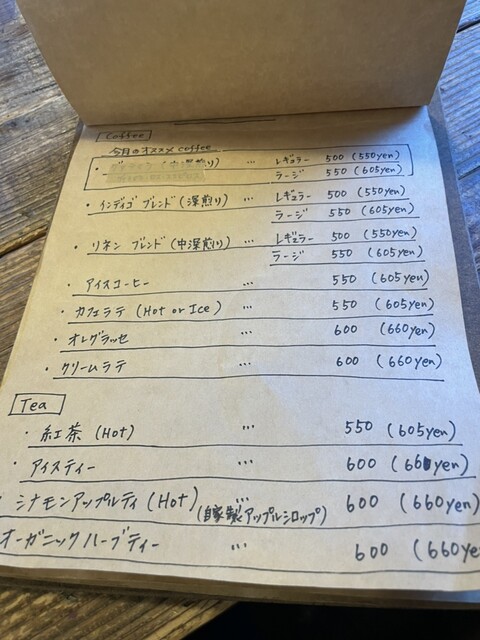 Coffee
今月のオススメ coffee
(中深煎り) … レギュラー 500 (550yen)
ラージ 550 (605yen)
・インディゴブレンド(深煎り) … レギュラー 500 (550yen)
ラージ 550 (605yen)
・リネン ブレンド(中深煎り) … レギュラー 500 (550yen)
ラージ 550 (605yen)
・アイスコーヒー … 550 (605yen)
・カフェラテ (Hot or Ice) … 550 (605yen)
・オレグラッセ … 600 (660yen)
・クリームラテ … 600 (660yen)
Tea
・紅茶 (Hot) … 550 (605yen)
・アイスティー … 600 (660yen)
・シナモンアップルティ (Hot) … 600 (660yen)
(自家製アップルシロップ)
オーガニックハーブティー … 600 (660ye